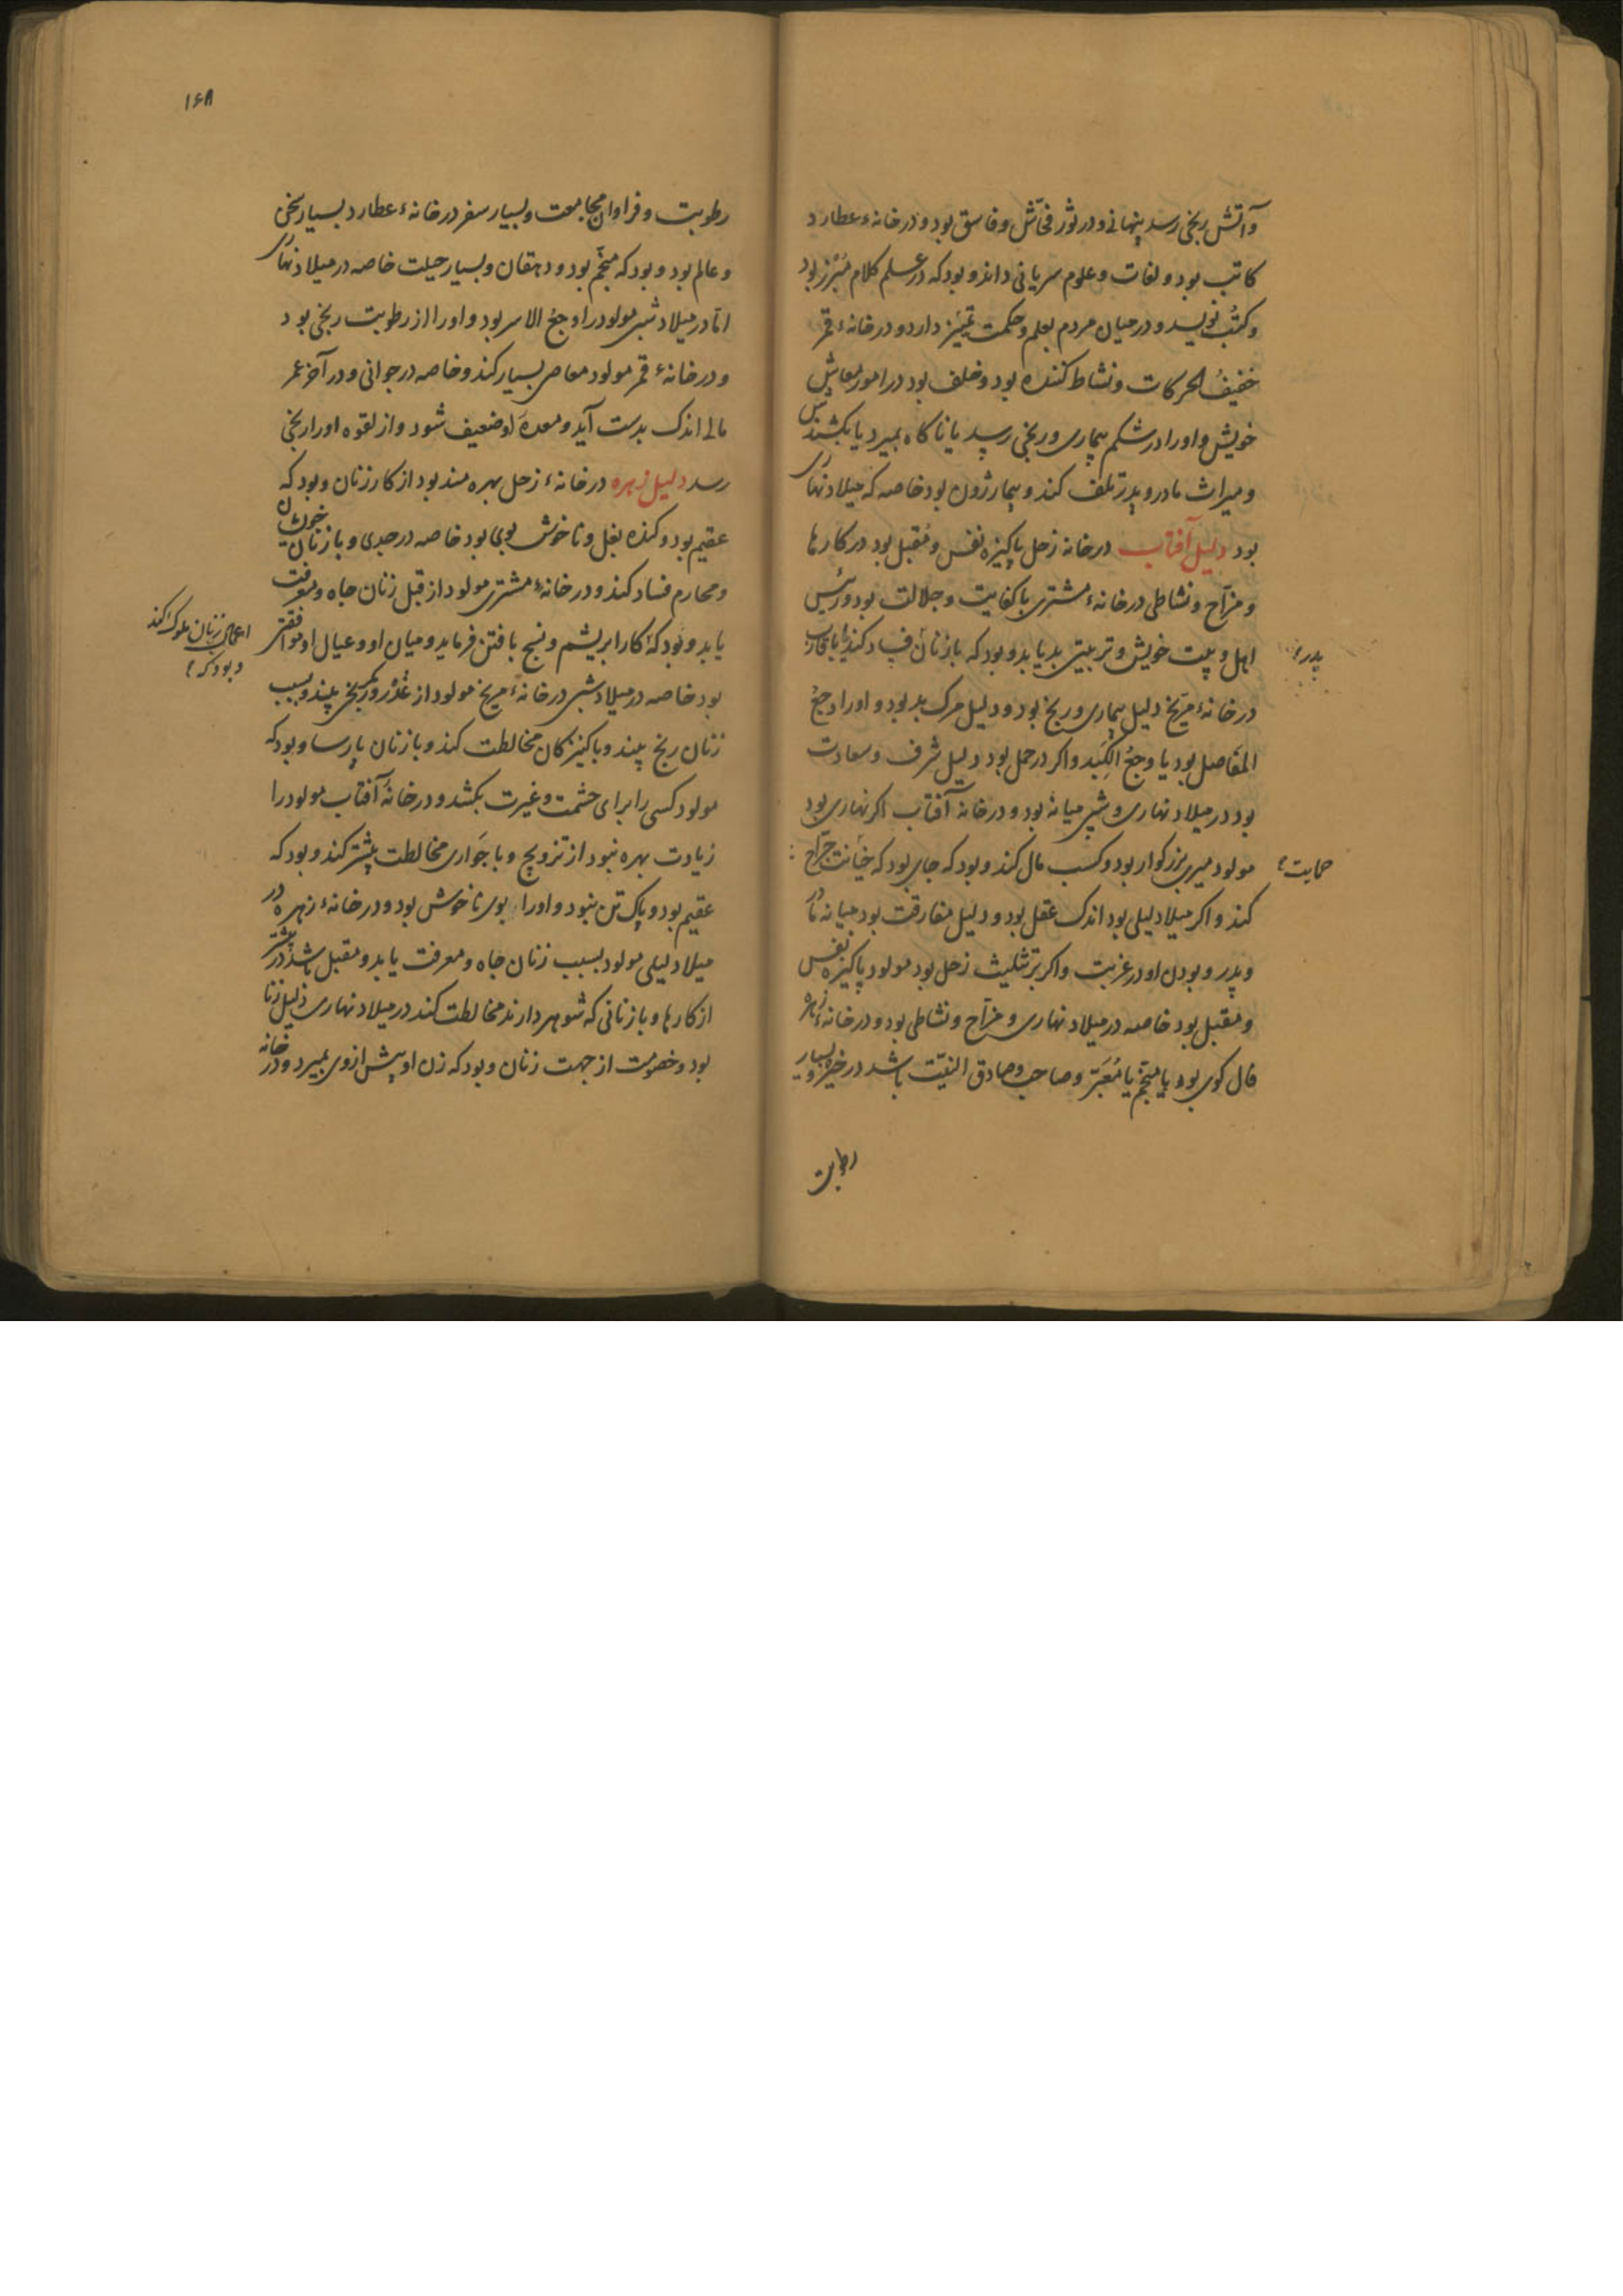 وآتش رنجی رسد پنهانی و در ثور فحّاش و فاسق بود و در خانهٔ عطارد
کاتب بود و لغات و علوم سریانی داند و بود که در علم کلام مُبْرَز بود
و کتُب نویسد و در میان مردم بعلم و حکمت تمیَز دارد و در خانهٔ قمر
خفیفُ الحرکات و نشاط کننده بود و خلف بود در امور معاش
خویش و اورا در شکم بیماری و رنجی رسد یا ناکاه بمیرد یا بکشندش
و میراث مادر و پدر تلف کند و بیمار زون بود خاصه که میلاد نهاری
بود دلیل آفتاب در خانه زحل پاکیزه نفس و مُقبل بود در کارها
و مزّاح و نشاطی در خانهٔ مشتری با کفایت و جلالت بود و رئیس
اهل و بیت خویش و تربیتی بد یابد و بود که با زنان فساد کند یا باقارب
پدر؛
در خانهٔ مرّیخ دلیل بیماری و رنج بود و دلیل مرک بد بود و اورا وجعُ
المفاصل بود یا وجعُ الکَبِد و اکر در حمل بود دلیل شرف و سعادت
بود در میلاد نهاری و شبی میانه بود و در خانهٔ آفتاب اکر نهاری بود
مولود میری بزرکوار بود و کسب مال کند و بود که جای بود که خیانت جرّاح
حمایت؛
کند و اکر میلاد لیلی بود اندک عقل بود و دلیل مفارقت بود میانه مادر
و پدر و بودن او در غربت و اکر بر تثلیث زحل بود مولود پاکیزه نفس
و مقبل بود خاصه در میلاد نهاری و مزّاح و نشاطی بود و در خانهٔ زهره
فال کوی بود یا منجّم یا مُعَبّر و صاحب و صادق النیّت باشد در خیر و بسیار
رطوبت
۱۶۸
رطوبت و فراوان مجامعت و بسیار سفر در خانهٔ عطارد بسیار سخن
و عالم بود و بود که منجّم بود و دهقان و بسیار حیلت خاصه در میلاد نهاری
امّا در میلاد شبی مولود را وجعُ الاسر بود و اورا از رطوبت رنجی بود
و در خانهٔ قمر مولود معاصی بسیار کند و خاصه در جوانی و در آخر عمر
مالی اندک بدست آید و معدهٔ او ضعیف شود و از لقوه اورا رنجی
رسد دلیل زهره در خانهٔ زحل بهره مند بود از کار زنان و بود که
عقیم بود و کنده بغل و ناخوش بوی بود خاصه در جدی و با زنان خویشان
و محارم فساد کند و در خانهٔ مشتری مولود از قبل زنان جاه و معرفت
یابد و بود که کار ابریشم و نسج بافتن فرماید و میان او و عیال او موافقتی
اعمال زنان ملوک کند
و بود که؛
بود خاصه در میلاد شبی در خانهٔ مریخ مولود از غَدْر و مکر رنجی بیند و بسبب
زنان رنج بیند و با کنیزکان مخالطت کند و با زنان پارسا و بود که
مولود کسی را برای حشمت و غیرت بکشد و در خانهٔ آفتاب مولود را
زیادت بهره نبود از تزویج و با جَواری مخالطت بیشتر کند و بود که
عقیم بود و پاک تن نبود و اورا بوی ناخوش بود و در خانهٔ زهره در
میلاد لیلی مولود بسبب زنان جاه و معرفت یابد و مقبل باشد در بیشتر
از کارها و با زنانی که شوهر دارند مخالطت کند در میلاد نهاری ذلیل زنا
بود و خصومت از جهت زنان و بود که زن او پیش از وی بمیرد و در خانه